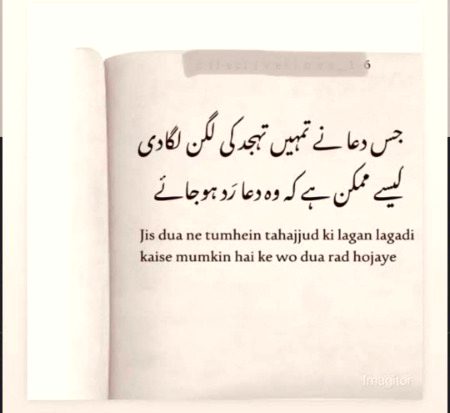 جس دعا نے تمہیں تہجد کی لگن لگا دی
کیسے ممکن ہے کہ وہ دعا رَد ہو جائے
Jis dua ne tumhein tahajjud ki lagan lagadi
kaise mumkin hai ke wo dua rad hojaye
Imagitor